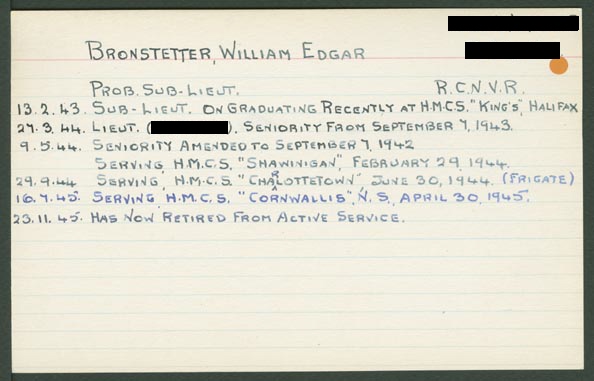 BRONSTETTER, WILLIAM EDGAR
PROB. SUB-LIEUT. R.C.N.V.R.
13.2.43. SUB-LIEUT. ON GRADUATING RECENTLY AT H.M.C.S. "KING'S", HALIFAX
27.3.44. LIEUT. ( ). SENIORITY FROM SEPTEMBER 7, 1943.
9.5.44. SENIORITY AMENDED TO SEPTEMBER 7, 1942
SERVING, H.M.C.S. "SHAWINIGAN", FEBRUARY 29, 1944.
29.9.44 SERVING, H.M.C.S. "CHARLOTTETOWN", JUNE 30, 1944. (FRIGATE)
16.7.45. SERVING, H.M.C.S. "CORNWALLIS", N.S., APRIL 30, 1945.
23.11.45. HAS NOW RETIRED FROM ACTIVE SERVICE.